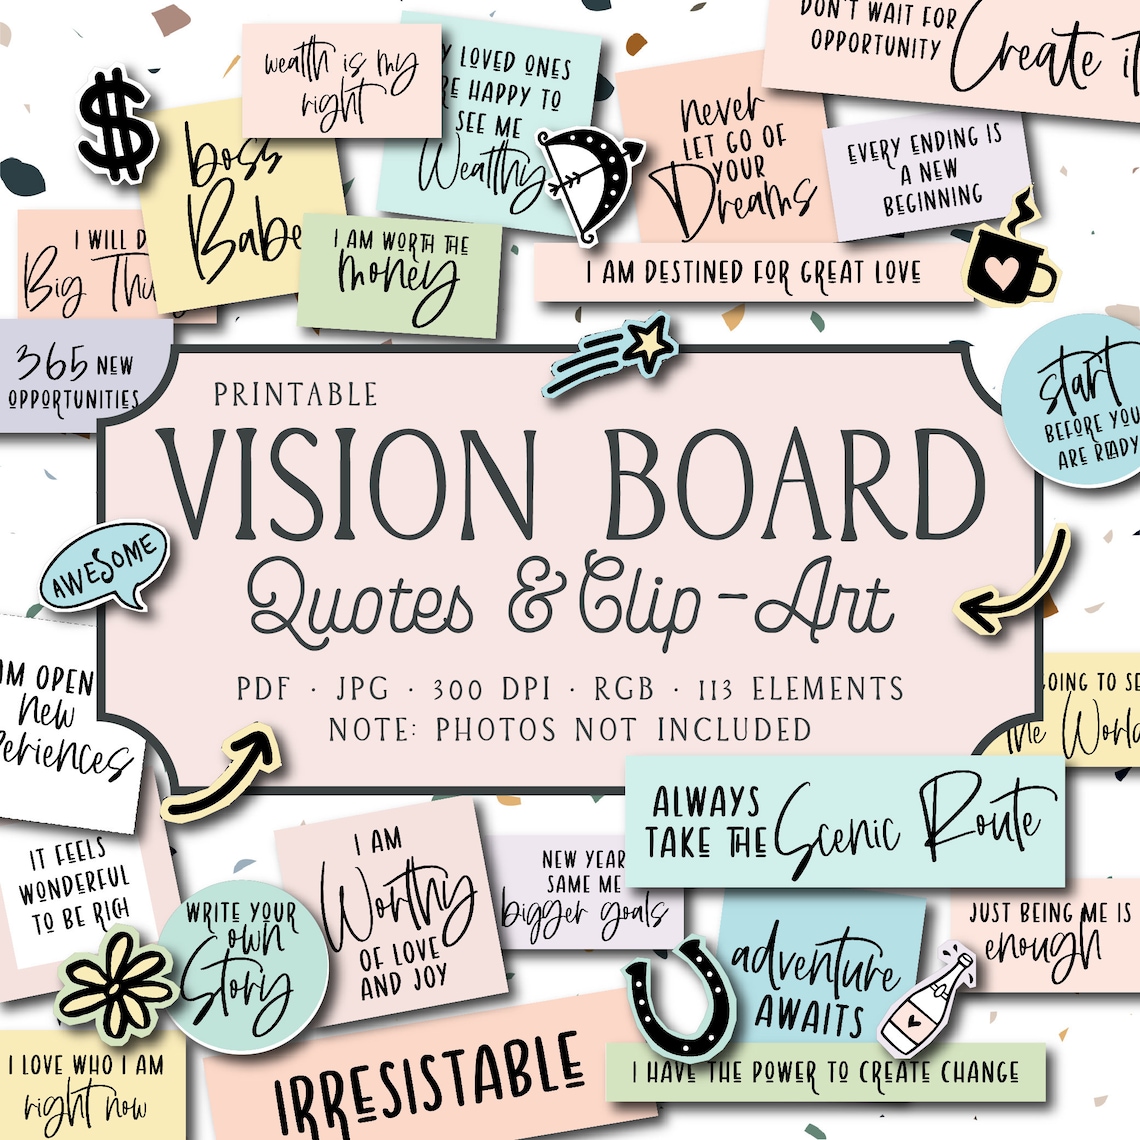 DON'T WAIT FOR
OPPORTUNITY
Create it
wealth is my
right
LOVED ONES
HAPPY TO
SEE ME
Wealthy
boss
Babe
never
LET GO OF
YOUR
Dreams
EVERY ENDING IS
A NEW
BEGINNING
I WILL
Big
I AM WORTH THE
money
I AM DESTINED FOR GREAT LOVE
365 NEW
OPPORTUNITIES
start
BEFORE YOU
ARE READY
PRINTABLE
VISION BOARD
Quotes & Clip-Art
PDF · JPG · 300 DPI · RGB · 113 ELEMENTS
NOTE: PHOTOS NOT INCLUDED
AWESOME
OPEN
New
GOING TO
the World
ALWAYS
TAKE THE
Scenic Route
IT FEELS
WONDERFUL
TO BE RICH
I AM
Worthy
OF LOVE
AND JOY
NEW YEAR
SAME ME
bigger goals
WRITE YOUR
own
Story
adventure
AWAITS
JUST BEING ME IS
enough
I LOVE WHO I AM
right now
IRRESISTABLE
I HAVE THE POWER TO CREATE CHANGE